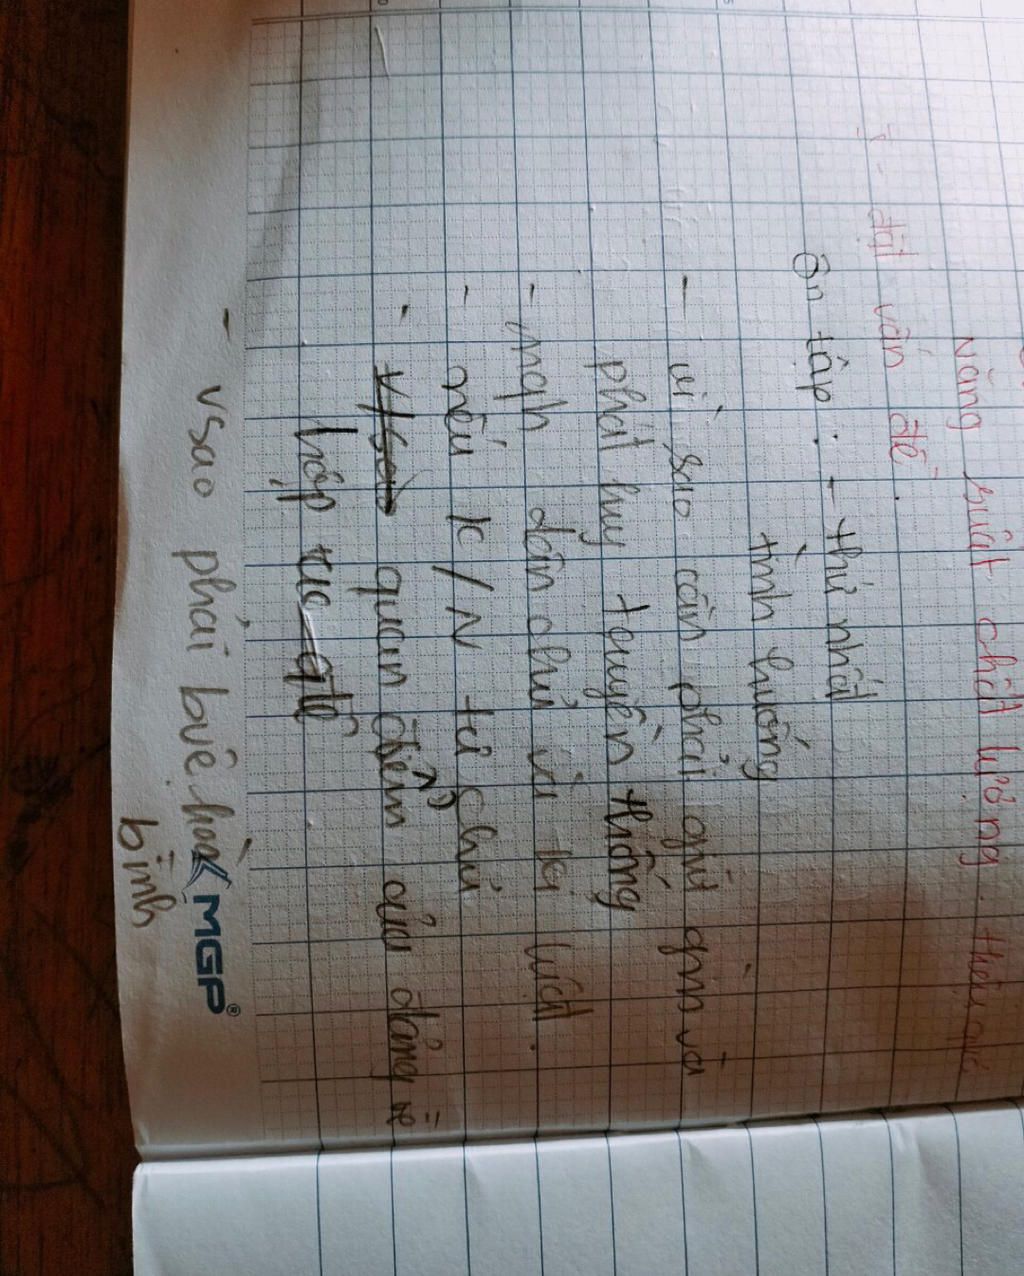 năng suất chất lượng. hiệu quả
I - đặt vấn đề.
Ôn tập : - thứ nhất
tình huống
- vì sao cần phải giữ gìn và
phát huy truyền thống
- mqh dân chủ và kỉ luật.
- nêu k/N tự chủ
- quan điểm của đảng về
hợp tác qtế
- vsao phải bvệ hoà
bình
MGP®